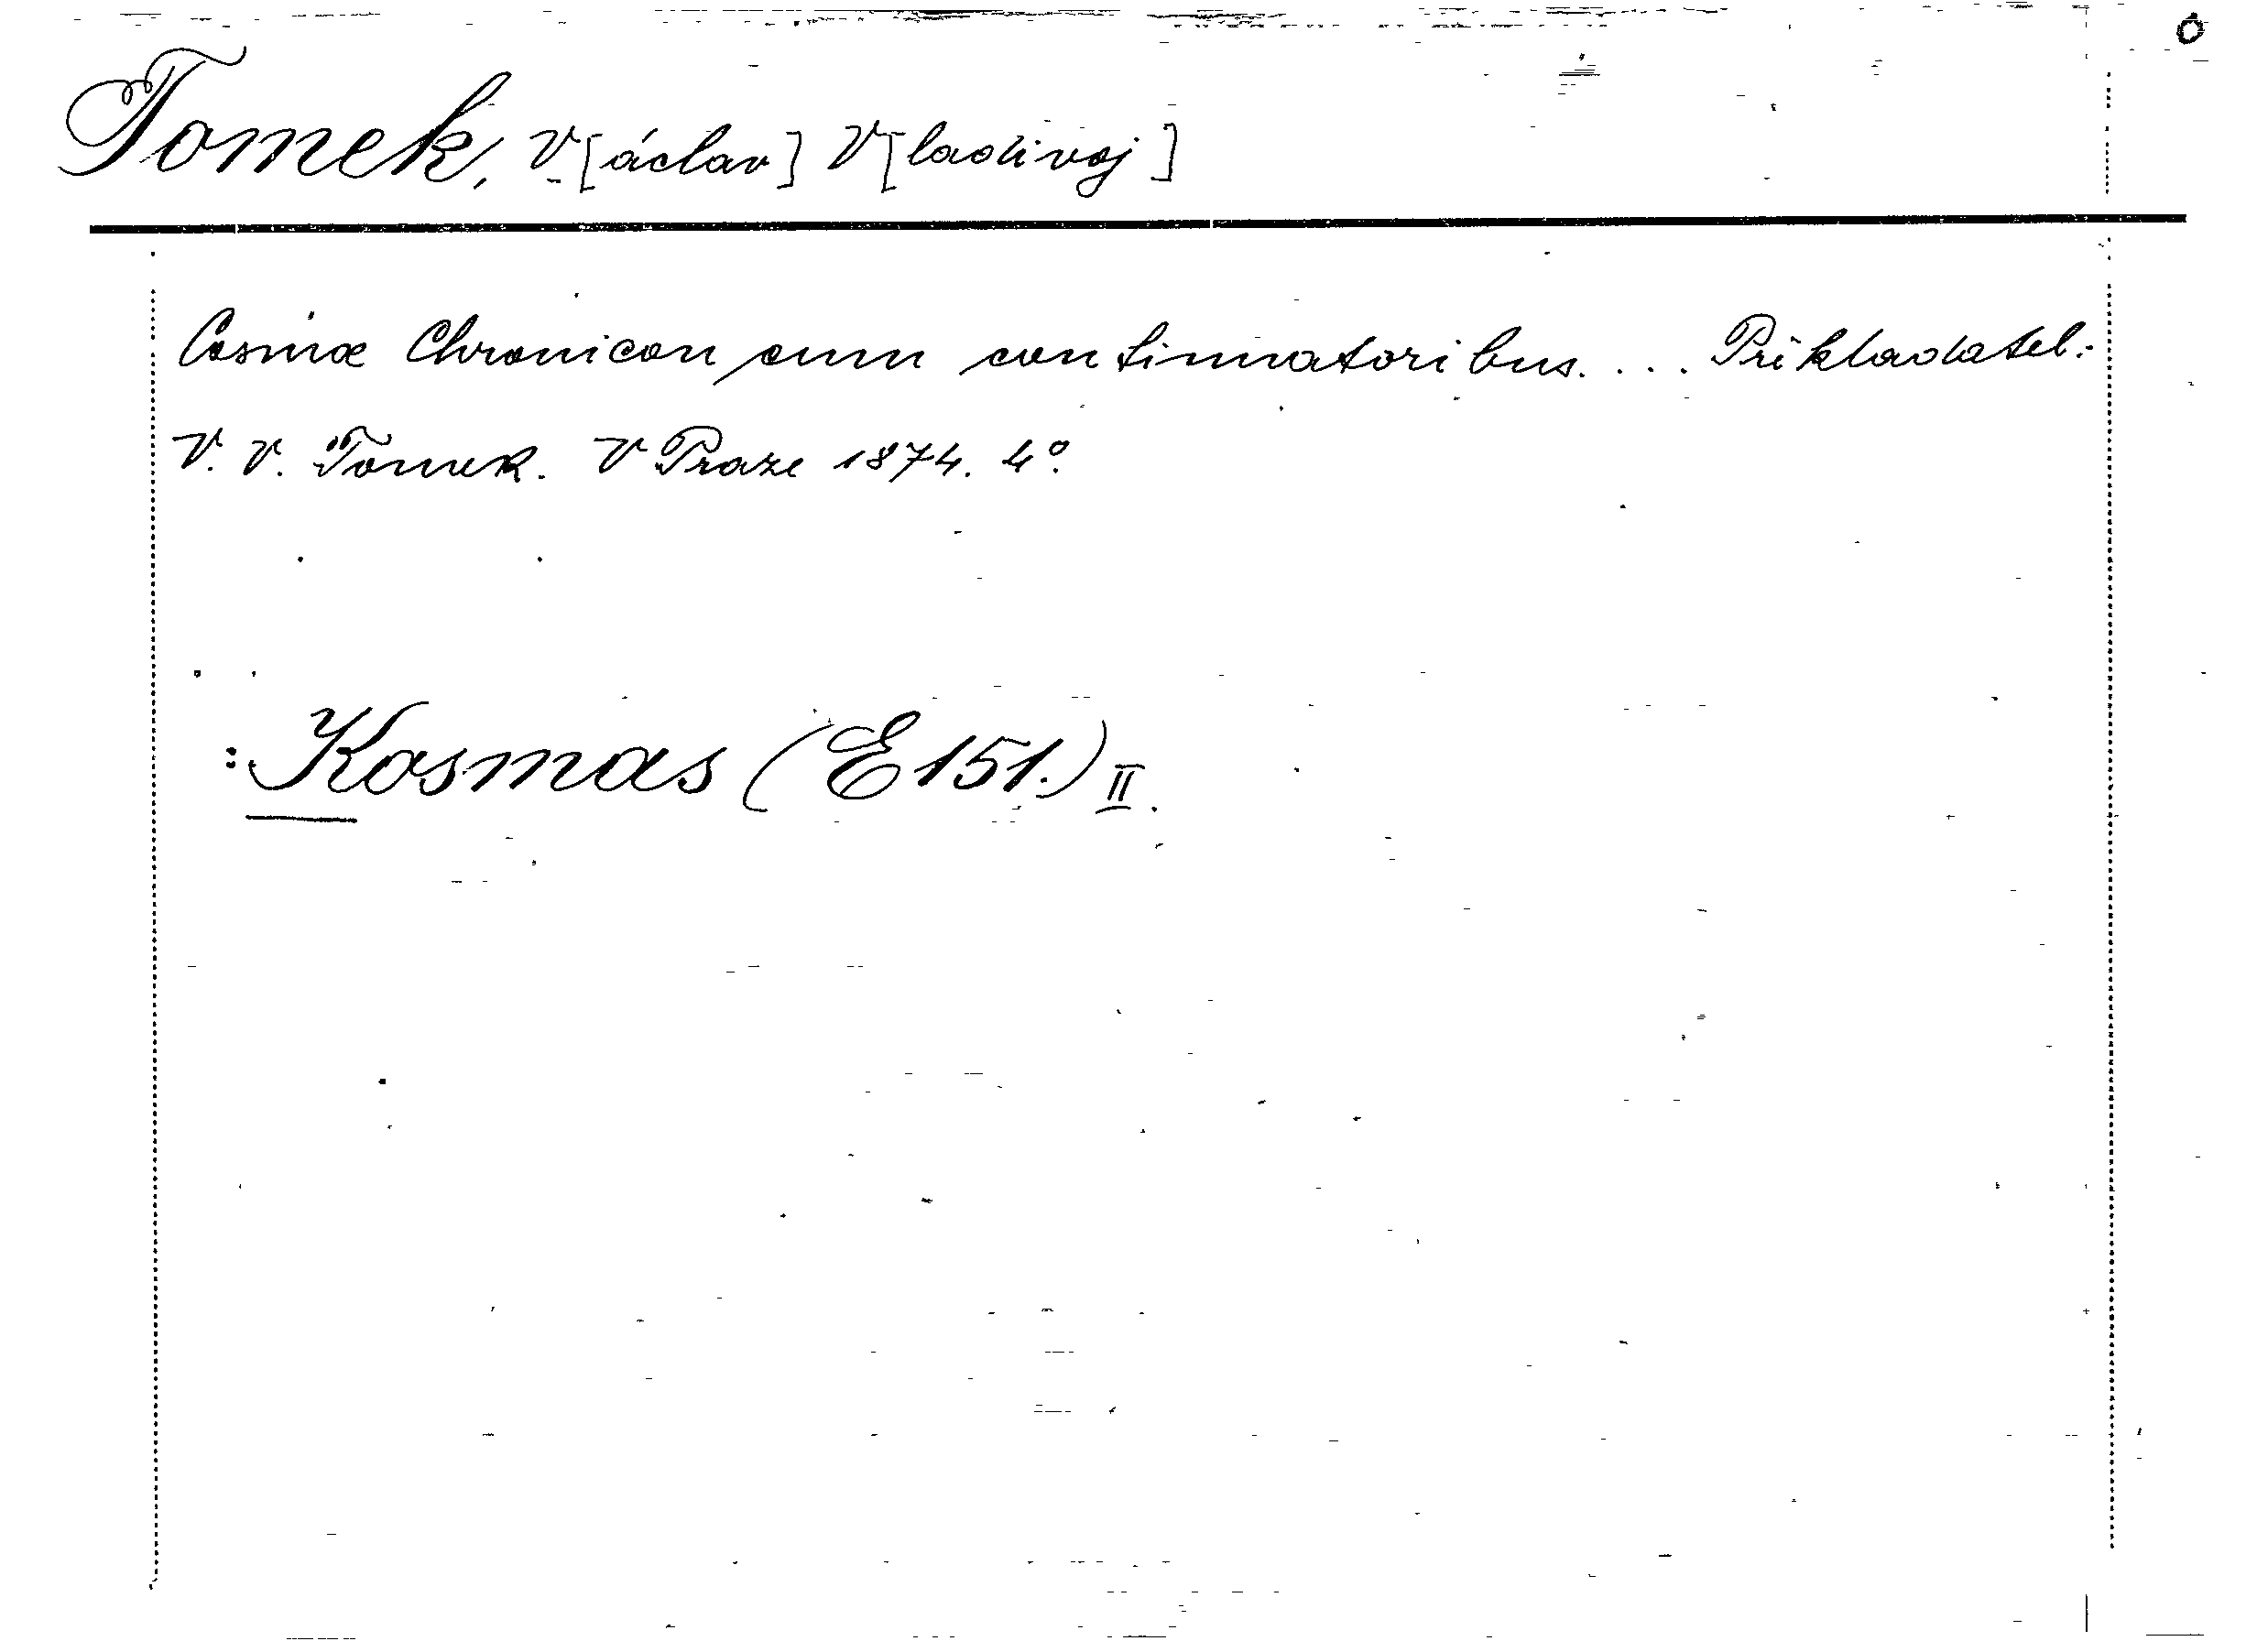 Tomek, V[áclav] V[ladivoj]
Cosmæ Chronicon cum continuatoribus.... Překladatel:
V. V. Tomek. V Praze 1874. 4°.
: Kosmas (E 151.) II.